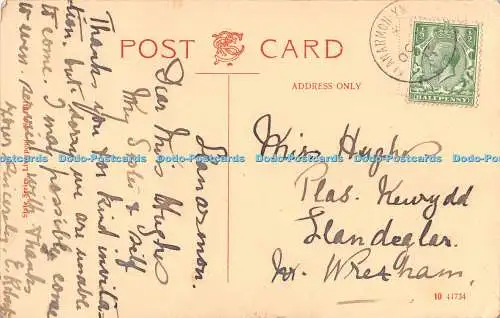 POST CARD
ADDRESS ONLY
HALFPENNY
Llanarmon.
Dear Miss Hughes
My Sister & self
Thank you for kind invita-
tion, but sorry we are unable
to come. I may possibly come
with thanks
Yours sincerely. E.
Miss Hughes
Plas Newydd
Llandegla.
Nr. Wrexham.
10 41734
Dodo-Postcards Dodo-Postcards Dodo-Postcards Dodo-Postcards Dodo-Postcards